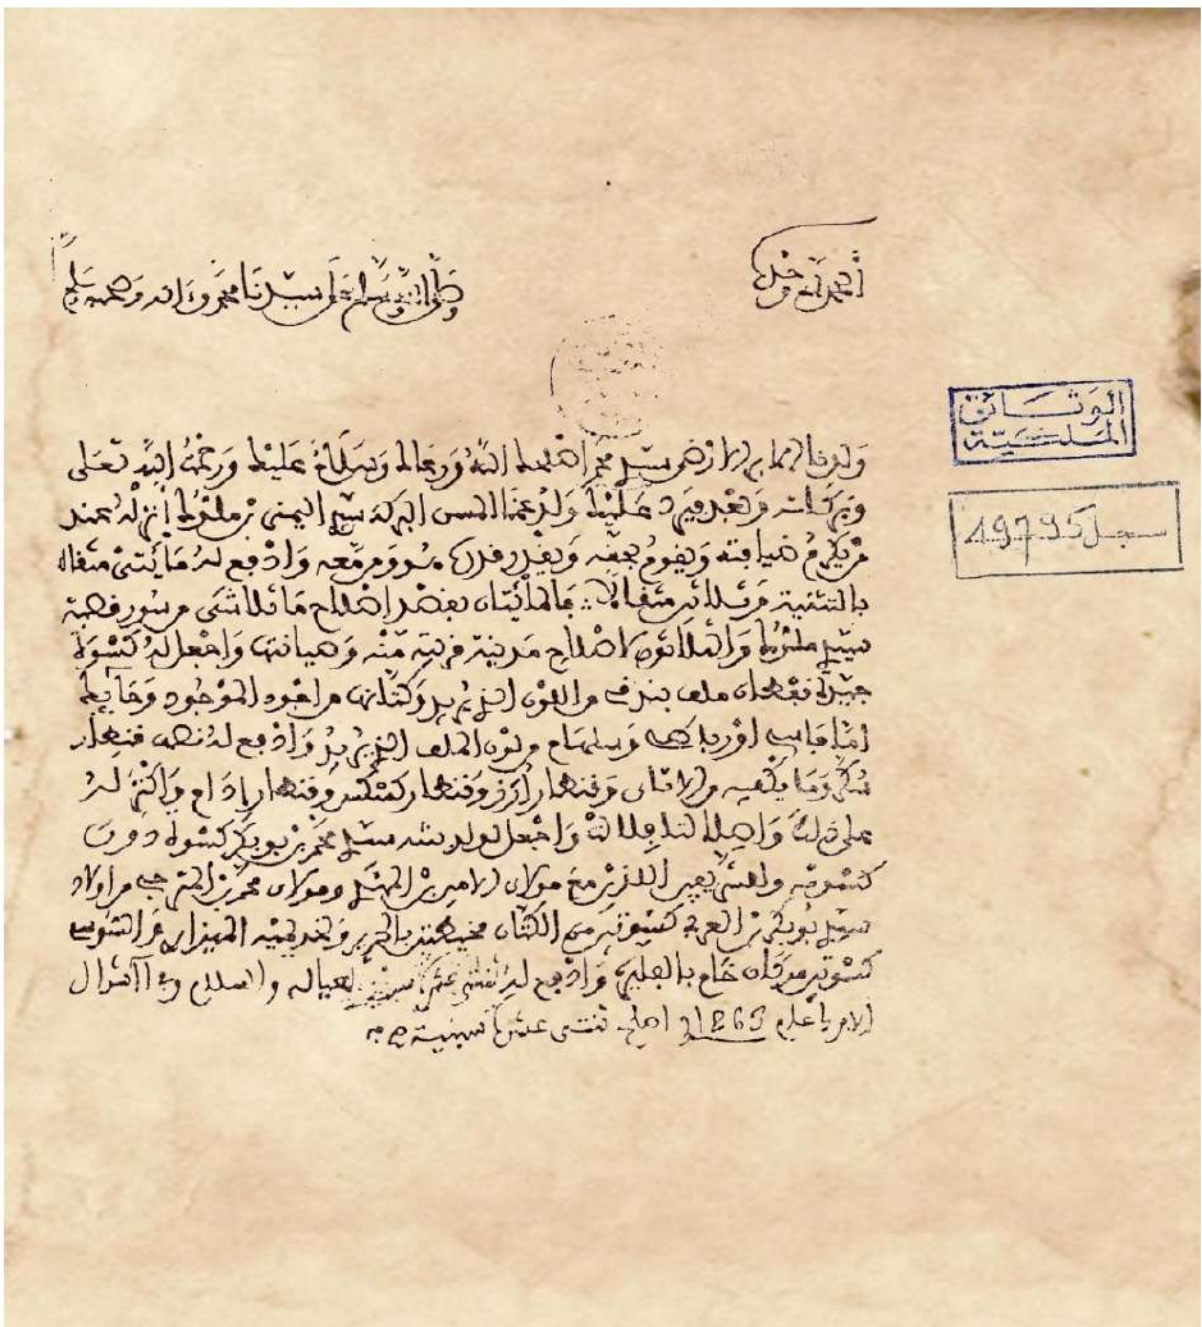 الحمد لله وحده
وصلى الله وسلم على سيدنا محمد وءاله وصحبه
الوثائق
الملكية
سجل 49795
ولدنا الابر الارضى سيدي محمد اصلحك الله ورعاك وسلام عليك ورحمت الله تعلى
وبركاته وبعد فيرد عليك ولد عمنا المسن البركة سيدي اليمني بن ملوك أنزله عند
من يكرم ضيافته ويقوم بحقه ويقدر قدره هو ومن معه وادفع له مائتي مثقال
بالتثنية وثلاثين مثقالا فالمائتان بقصد إصلاح ما تلاشى من سور قصبة
سيدي ملوك والثلاثون لاصلاح مدينة قريبة منه وصيانتها واجعل له كسوة
جيدة قفطان ملف من اللون الذي يريد وكتان من اجود الموجود وحايك
اما فاسي او وسلهام من لون الملف الذي يريد وادفع له نصف قنطار
سكر وما يكفيه من الاتاي وقنطار أرز وقنطار كسكس وقنطار إدام
على ذلك واجعل لولده سيدي محمد بن بوبكر كسوة دون
كسوته والشريفين اللذين مع مولاي الامين بن المهدي ومولاي محمد بن من اولاد
سيدي بوبكر بن العربي كسوتين من الكتان مخيطتين بالحرير ولخديميه
كسوتين خام وادفع له لعياله والسلام في
الامر باعلام 1265 صلح ثنتى عشرة